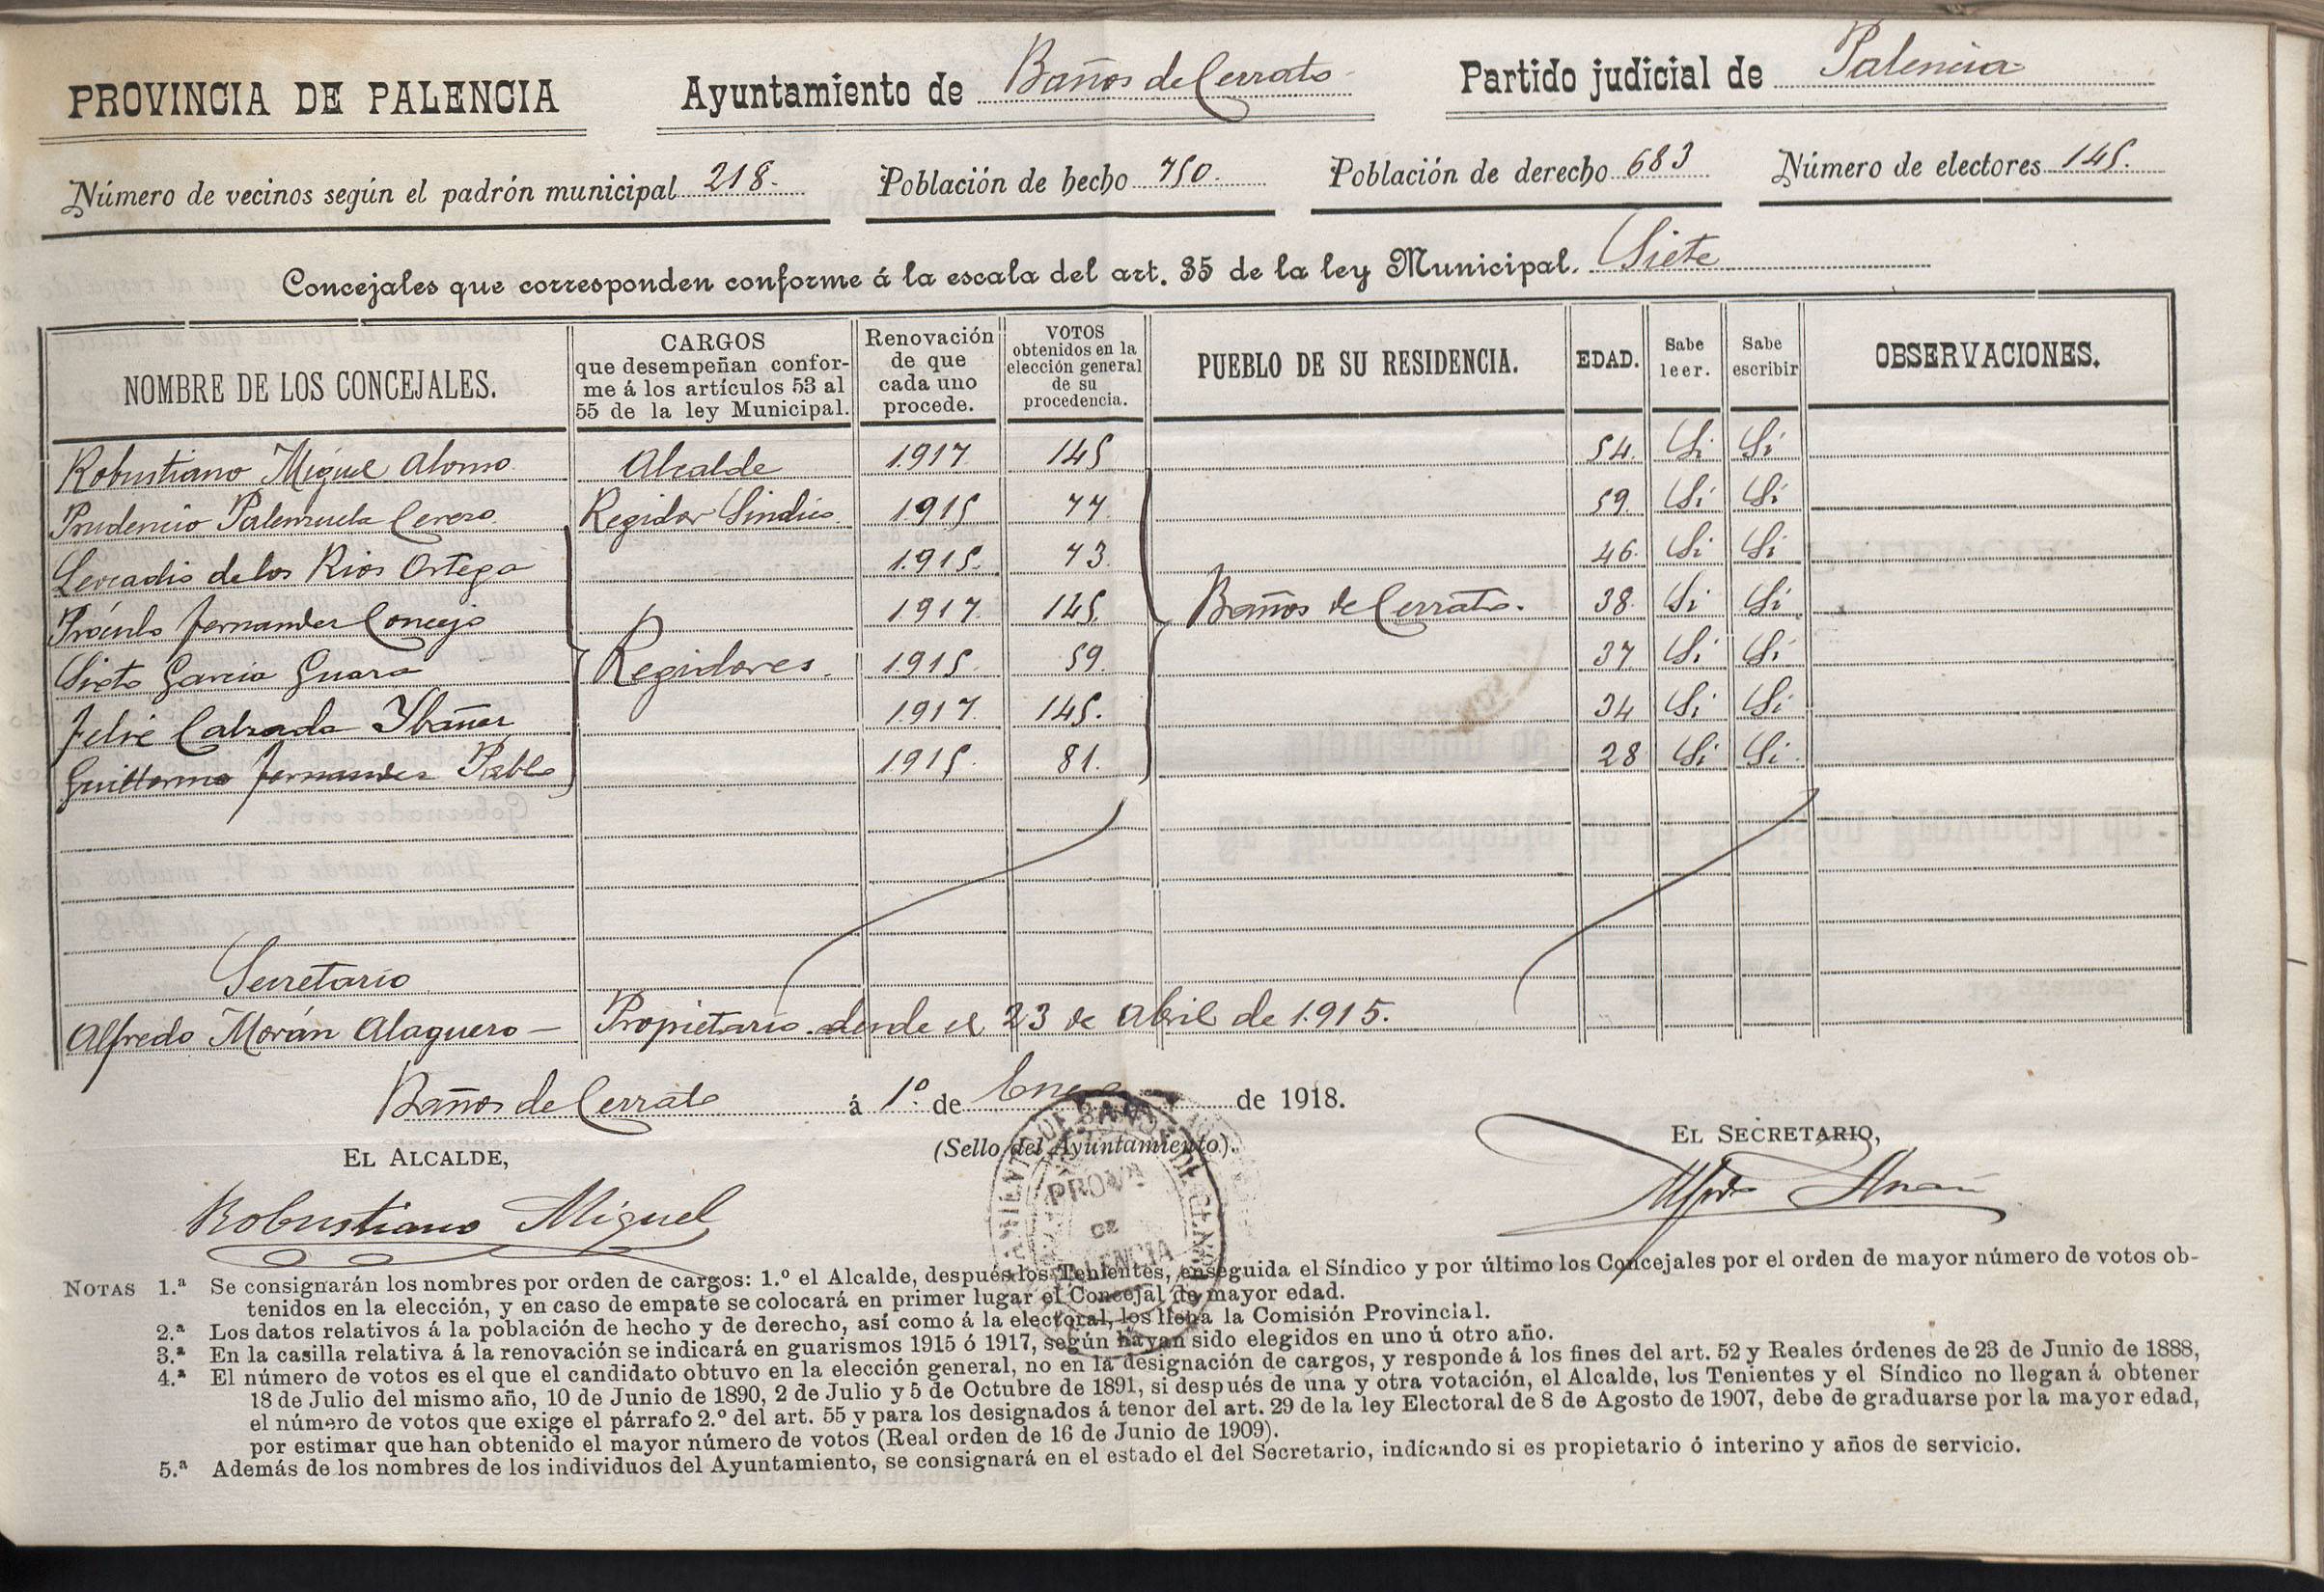 PROVINCIA DE PALENCIA Ayuntamiento de Baños de Cerrato Partido judicial de Palencia
Número de vecinos según el padrón municipal 218. Población de hecho 750. Población de derecho 683 Número de electores 145.
Concejales que corresponden conforme á la escala del art. 35 de la ley Municipal. Siete
NOMBRE DE LOS CONCEJALES. CARGOS que desempeñan conforme á los artículos 53 al 55 de la ley Municipal. Renovación de que cada uno procede. VOTOS obtenidos en la elección general de su procedencia. PUEBLO DE SU RESIDENCIA. EDAD. Sabe leer. Sabe escribir OBSERVACIONES.
Robustiano Miguel Alonso Alcalde 1917 145 54. Si Si
Prudencio Palenzuela Cerezo Regidor Sindico 1915 77 59. Si Si
Leocadio de los Rios Ortega 1915. 73. 46. Si Si
Próculo Fernandez Concejo 1917. 145. Baños de Cerrato. 38. Si Si
Sixto Garcia Guara Regidores. 1915. 59. 37 Si Si
Felix Calzada Ybañez 1917. 145. 34 Si Si
Guillermo Fernandez Pablo 1915. 81. 28 Si Si.
Secretario
Alfredo Morán Alaguero — Propietario desde el 23 de Abril de 1.915.
Baños de Cerrato á 1º de Enero de 1918.
(Sello del Ayuntamiento).
EL ALCALDE,
EL SECRETARIO,
PROVª
DE
PALENCIA
Robustiano Miguel
Alfredo Morán
NOTAS 1.ª Se consignarán los nombres por orden de cargos: 1.º el Alcalde, después los Tenientes, enseguida el Síndico y por último los Concejales por el orden de mayor número de votos ob-
tenidos en la elección, y en caso de empate se colocará en primer lugar el Concejal de mayor edad.
2.ª Los datos relativos á la población de hecho y de derecho, así como á la electoral, los llena la Comisión Provincial.
3.ª En la casilla relativa á la renovación se indicará en guarismos 1915 ó 1917, según hayan sido elegidos en uno ú otro año.
4.ª El número de votos es el que el candidato obtuvo en la elección general, no en la designación de cargos, y responde á los fines del art. 52 y Reales órdenes de 23 de Junio de 1888,
18 de Julio del mismo año, 10 de Junio de 1890, 2 de Julio y 5 de Octubre de 1891, si después de una y otra votación, el Alcalde, los Tenientes y el Síndico no llegan á obtener
el número de votos que exige el párrafo 2.º del art. 55 y para los designados á tenor del art. 29 de la ley Electoral de 8 de Agosto de 1907, debe de graduarse por la mayor edad,
por estimar que han obtenido el mayor número de votos (Real orden de 16 de Junio de 1909).
5.ª Además de los nombres de los individuos del Ayuntamiento, se consignará en el estado el del Secretario, indicando si es propietario ó interino y años de servicio.